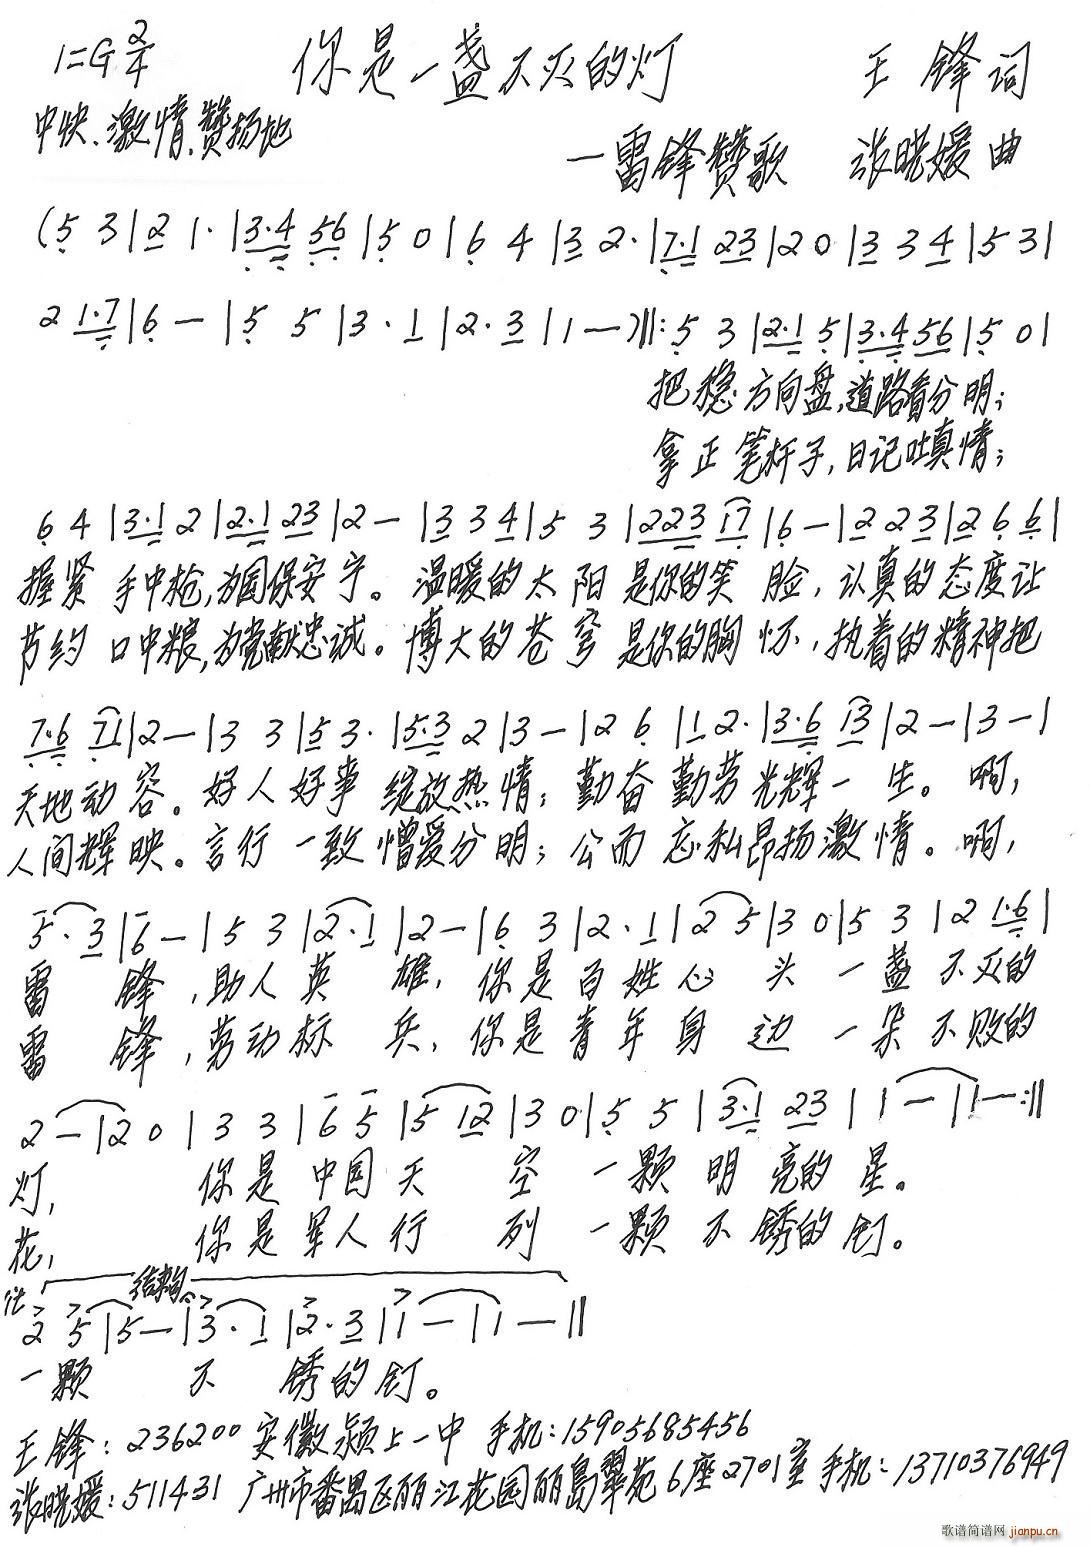 1=G 2/4 你是一盏不灭的灯 王锋词
中快、激情、赞扬地
—雷锋赞歌 张晓媛曲
(5 3|2 1·|3·4 56|5 0|6 4|3 2·|7·1 23|2 0|3 3 4|5 3|
2 1·7|6 —|5 5|3·1|2·3|1 —)‖:5 3|2·1 5|3·4 56|5 0|
把稳方向盘,道路看分明;
拿正笔杆子,日记吐真情;
6 4|3·1 2|2·1 23|2 —|3 3 4|5 3|223 17|6 —|2 2 3|2 6 6|
握紧手中枪,为国保安宁。温暖的太阳是你的笑脸,认真的态度让
节约口中粮,为党献忠诚。博大的苍穹是你的胸怀,执着的精神把
7·6 71|2 —|3 3|5 3·|5·3 2|3 —|2 6|1 2·|3·6 13|2 —|3 —|
天地动容。好人好事绽放热情;勤奋勤劳光辉一生。啊,
人间辉映。言行一致憎爱分明;公而忘私昂扬激情。啊,
5·3|6 —|5 3|2·1|2 —|6 3|2·1|2 5|3 0|5 3|2 1·6|
雷锋,助人英雄,你是百姓心头一盏不灭的
雷锋,劳动标兵,你是青年身边一朵不败的
2 —|2 0|3 3|6 5|5 12|3 0|5 5|3·1 23|1 —|1 —:‖
灯,你是中国天空一颗明亮的星。
花,你是军人行列一颗不锈的钉。
结束句
2 5|5 —|3·1|2·3|1 —|1 —‖
一颗不锈的钉。
王锋:236200 安徽颍上一中 手机:15905685456
张晓媛:511431 广州市番禺区丽江花园丽岛翠苑6座2701室 手机:13710376949
歌谱简谱网 jianpu.cn